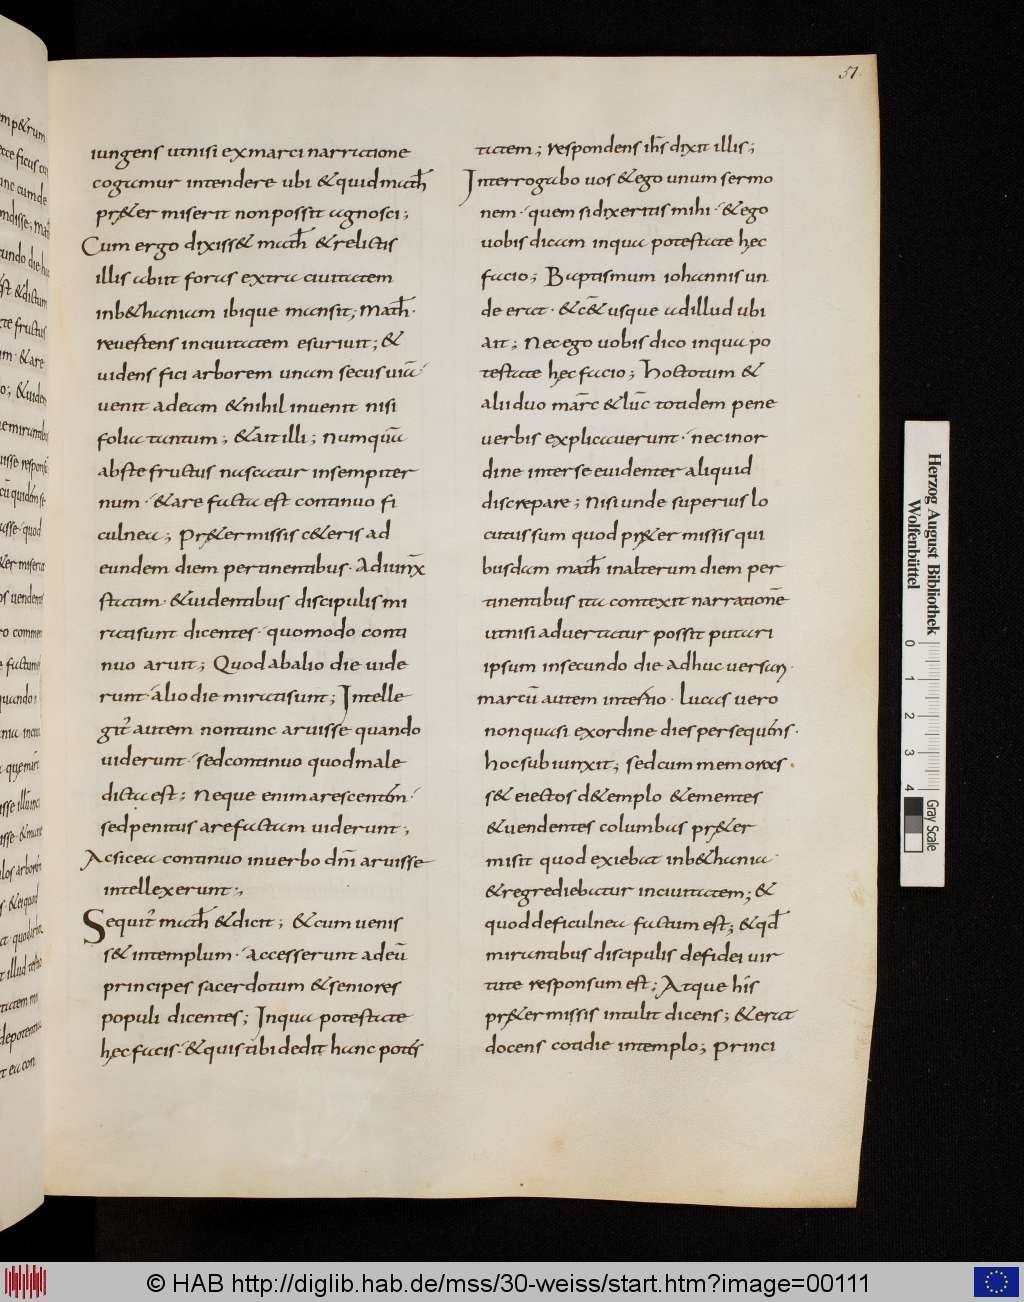 51.
iungens utnisi exmarci narratione
cogamur intendere ubi &quid math̅
pr&er miserit nonpossit agnosci;
Cum ergo dixiss& math̅ &relictis
illis abiit foras extra ciuitatem
inb&haniam ibique mansit; math̅·
reuertens inciuitatem esuriuit; &
uidens fici arborem unam secus uiā·
uenit adeam &nihil inuenit nisi
folia tantum; &ait illi; numquā
abste fructus nascatur insempiter
num· &arefacta est continuo fi
culnea; Pr&ermissis c&eris ad
eundem diem pertinentibus· adiunx̅
statim· &uidentibus discipulis mi
ratisunt dicentes· quomodo conti
nuo aruit; Quodabalio die uide
runt· alio die miratisunt; Intelle
git̉ autem nontunc aruisse quando
uiderunt· sedcontinuo quodmale
dicta est; Neque enim arescentem·
sedpenitus arefactam uiderunt;
Acsicea continuo inuerbo dnī aruisse
intellexerunt;,
Sequit̉ math̅ &dicit; &cum uenis
s& intemplum· accesserunt adeū
principes sacerdotum &seniores
populi dicentes; Inqua potestate
hęc facis· &quis tibi dedit hanc potes
tatem; respondens ih̅s dixit illis;
Interrogabo uos &ego unum sermo
nem· quem sidixeritis mihi· &ego
uobis dicam inqua potestate hęc
facio; Baptismum iohannis un
de erat· &c̅& usque adillud ubi
ait; Nec ego uobis dico inqua po
testate hęc facio; Hoctotum &
alii duo marc̅ &luc̅ totidem pene
uerbis explicauerunt· necinor
dine interse euidenter aliquid
discrepare; Nisi unde superius lo
cutus sum quod pr&ermissis qui
busdam math̅ inalterum diem per
tinentibus ita contexit narratione̅
utnisi aduertatur possit putari
ipsum insecundo die adhuc uersari·
marcū autem intertio· lucas uero
nonquasi exordine dies persequens·
hoc subiunxit; sedcum memorass
s& eiectos d&emplo &ementes
&uendentes columbas pr&er
misit quod exiebat inb&hania·
&regrediebatur inciuitatem; &
quod deficulnea factum est; &qd̅
mirantibus discipulis defidei uir
tute responsum est; Atque his
pr&ermissis intulit dicens; &erat
docens cotidie intemplo; princi
Herzog August Bibliothek
Wolfenbüttel
0 1 2 3 4
Gray Scale
© HAB http://diglib.hab.de/mss/30-weiss/start.htm?image=00111